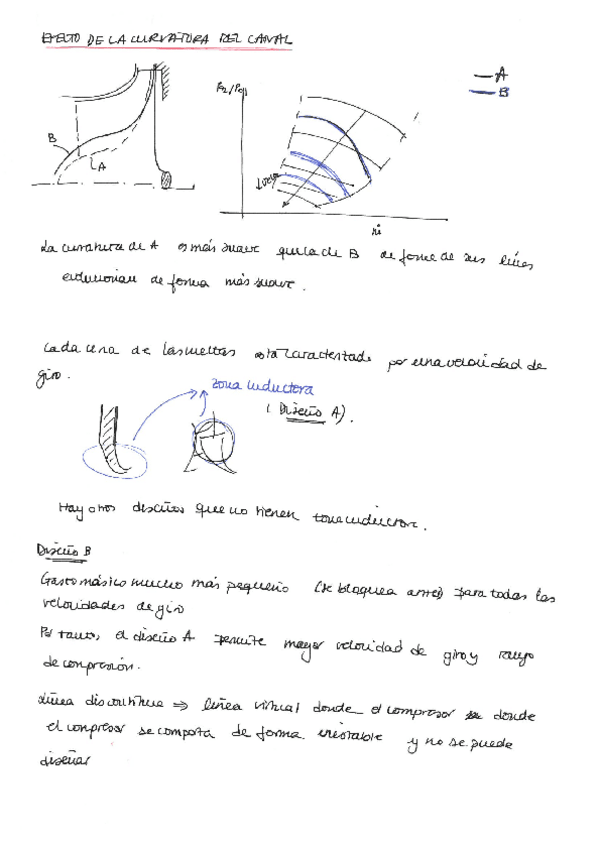 EFECTO DE LA CURVATURA DEL CANAL
A
B
B
A
ṁ
La curvatura de A es más suave que la de B de forma de sus líneas
evolucionan de forma más suave.
Cada una de las está caracterizada por una velocidad de
giro.
zona inductora
(Diseño A).
Hay otros diseños que no tienen zona inductora.
Diseño B
Gasto másico mucho más pequeño (se bloquea antes) para todas las
velocidades de giro
Por tanto, el diseño A permite mayor velocidad de giro y rango
de compresión.
Línea discontinua ⇒ línea virtual donde el compresor donde
el compresor se comporta de forma inestable y no se puede
diseñar